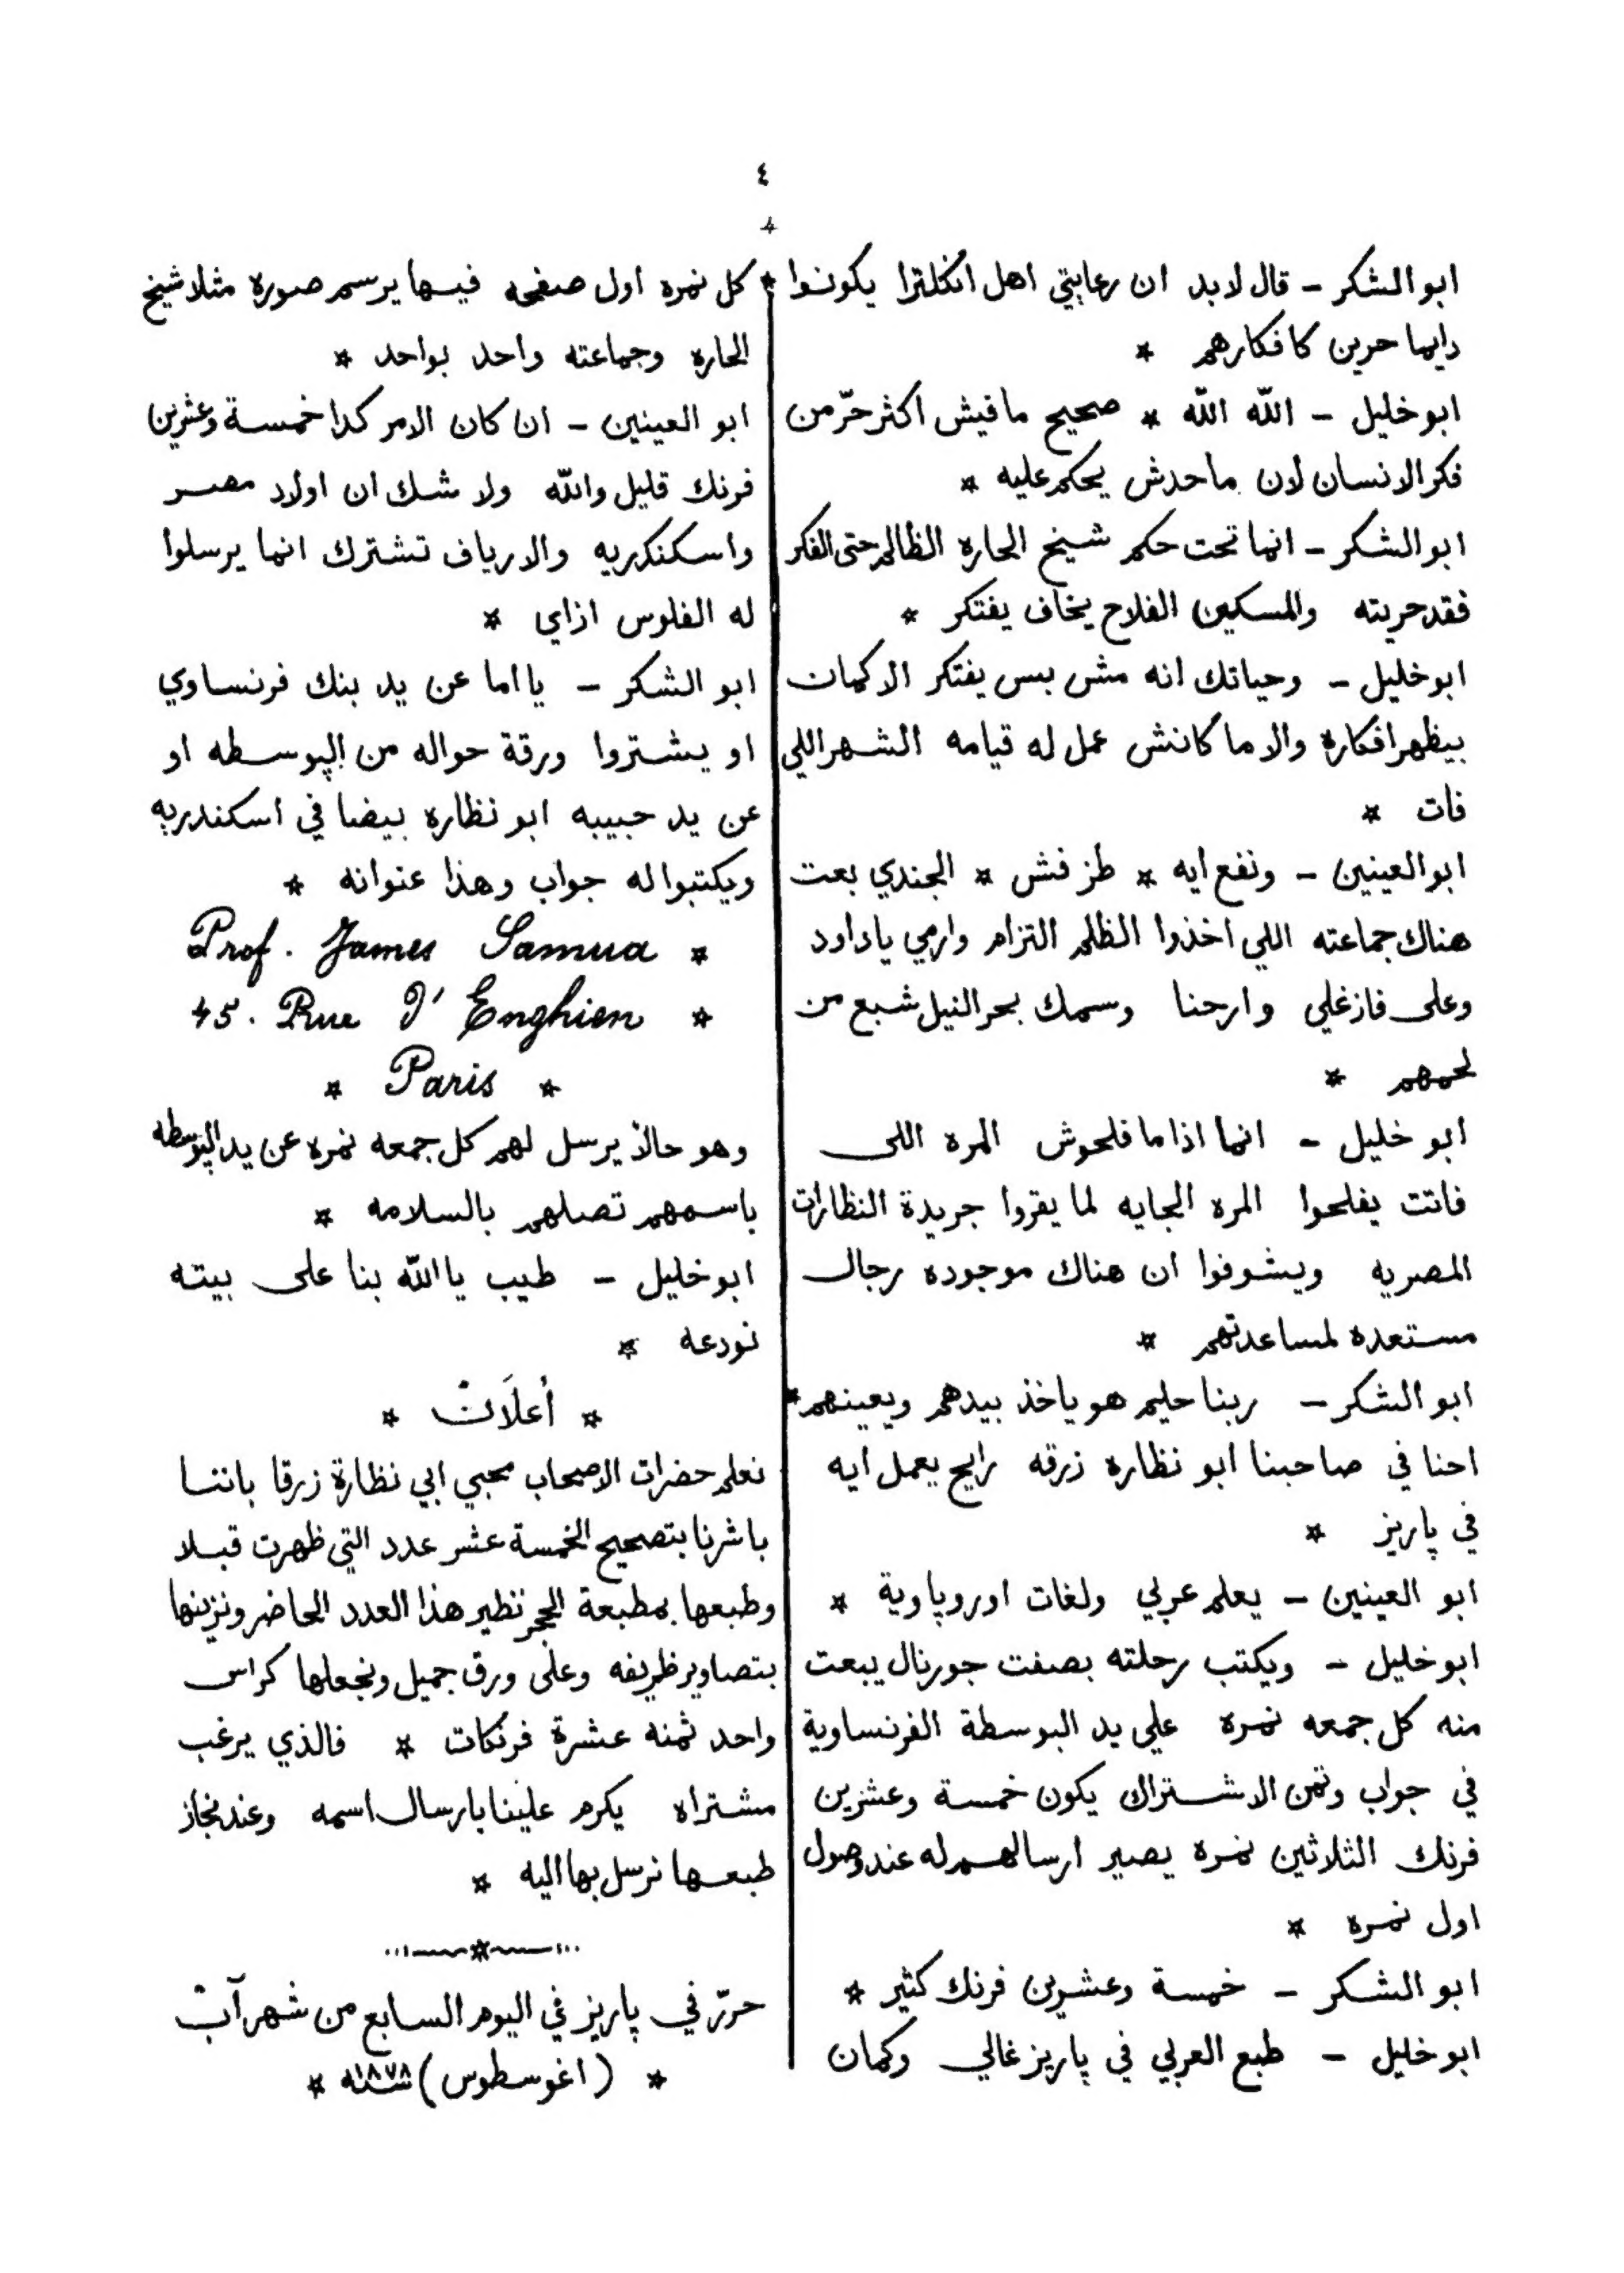 ٤
ابو الشكر – قال لابد ان رعايتي اهل انكلترا يكونوا
دايما حرين كافكارهم *
ابو خليل – الله الله * صحيح مافيش اكثر حرّ من
فكر الانسان لان ماحدش يحكم عليه *
ابو الشكر – انما تحت حكم شيخ الحاره الظالم حتى الفكر
فقد حريته والمسكين الفلاح يخاف يفتكر *
ابو خليل – وحياتك انه مش بس يفتكر الا كمان
بيظهر افكاره والا ما كانش عمل له قيامه الشهر اللي
فات *
ابو العينين – ونفع ايه * طز فش * الجندي بعت
هناك جماعته اللي اخذوا الظلم التزام وارمي يا داود
وعلى فازغلي وارحنا وسمك بحر النيل شبع من
لحمهم *
ابو خليل – انما اذا ما فلحوش المره اللى
فاتت يفلحوا المره الجايه لما يقروا جريدة النظارات
المصريه ويشوفوا ان هناك موجوده رجال
مستعده لمساعدتهم *
ابو الشكر – ربنا حليم هو ياخذ بيدهم ويعينهم *
احنا في صاحبنا ابو نظاره زرقه رايح يعمل ايه
في پاريز *
ابو العينين – يعلم عربي ولغات اوروپاوية *
ابو خليل – ويكتب رحلته بصفت جورنال يبعت
منه كل جمعه نمره علي يد البوسطة الفرنساوية
في جواب وتمن الاشتراك يكون خمسة وعشرين
فرنك الثلاثين نمره يصير ارسالهم له عند وصول
اول نمره *
ابو الشكر – خمسة وعشرين فرنك كثير *
ابو خليل – طبع العربي في پاريز غالي وكمان
* كل نمره اول صفحه فيها يرسم صورة مثلا شيخ
الحاره وجماعته واحد بواحد *
ابو العينين – ان كان الامر كدا خمسة وعشرين
فرنك قليل والله ولا شك ان اولاد مصر
واسكنكريه والارياف تشترك انما يرسلوا
له الفلوس ازاي *
ابو الشكر – يا اما عن يد بنك فرنساوي
او يشتروا ورقة حواله من الپوسطه او
عن يد حبيبه ابو نظاره بيضا في اسكندريه
ويكتبوا له جواب وهذا عنوانه *
Prof. James Samua *
45. Rue d' Enghien *
* Paris *
وهو حالاً يرسل لهم كل جمعه نمره عن يد الپوسطه
باسمهم تصلهم بالسلامه *
ابو خليل – طيب يا الله بنا على بيته
نودعه *
* أعلَان *
نعلم حضرات الاصحاب محبي ابي نظارة زرقا باننا
باشرنا بتصحيح الخمسة عشر عدد التي ظهرت قبلا
وطبعها بمطبعة الحجر نظير هذا العدد الحاضر ونزينها
بتصاوير ظريفه وعلى ورق جميل ونجعلها كراس
واحد ثمنه عشرة فرنكات * فالذي يرغب
مشتراه يكرم علينا بارسال اسمه وعند نجاز
طبعها نرسل بها اليه *
حرّر في پاريز في اليوم السابع من شهر آب
* (اغوسطوس) سنة ١٨٧٨ *